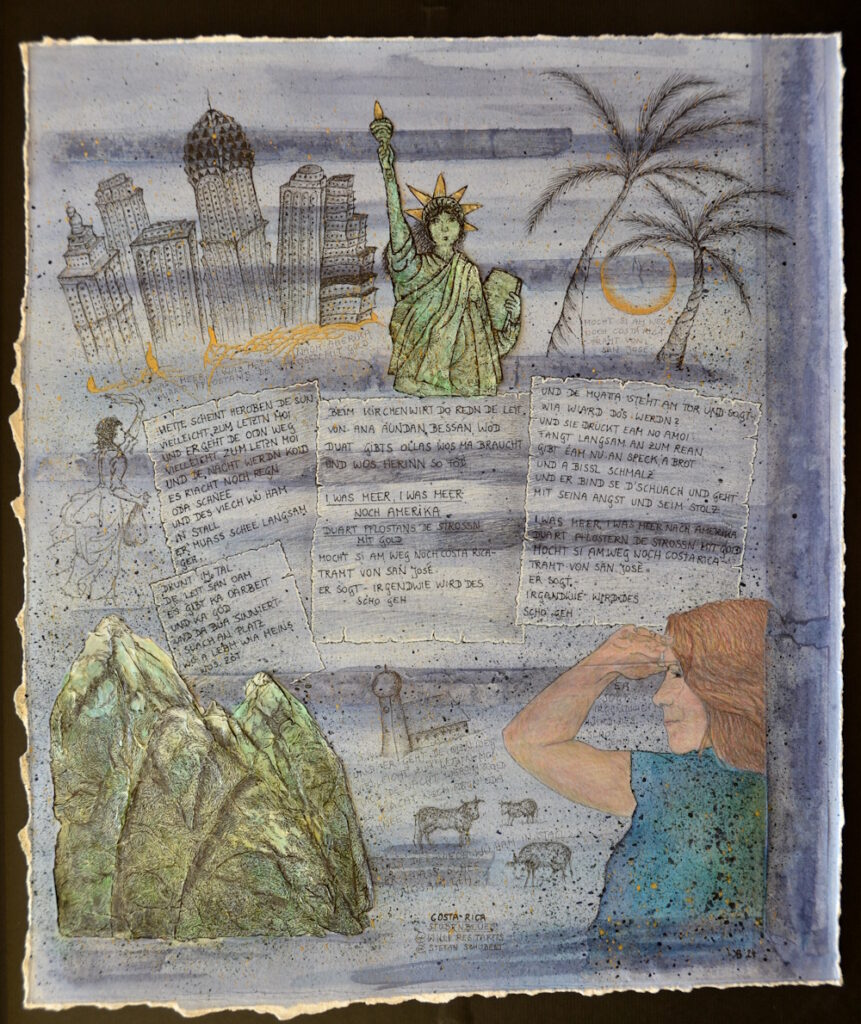 HEITE SCHEINT HEROBEN DE SUN
VIELLEICHT ZUM LETZTN MOI
UND ER GEHT DE ODN WEG
VIELLEICHT ZUM LETZN MOI
UND DE NÄCHT WERDN KOLD
ES RIACHT NOCH REGN
ODA SCHNEE
UND DES VIECH WÜ HAM
IN STALL
ER MUASS SCHEE LANGSAM
GEH
DRUNT IM TAL
DE LEIT SAN OAM
ES GIBT KA OARBEIT
UND KA GÖD
UND DA BUA SINNIERT
SUACH AN PLATZ
WO A LEBM WIA HEING
WOS ZÖT
BEIM KIRCHENWIRT DO REDN DE LEIT
VON ANA AUNDAN, BESSAN WÖD
DUAT GIBTS OLLAS WOS MA BRAUCHT
UND WOS HERINN SO FÖD
I WAS MEER, I WAS MEER
NOCH AMERIKA
DUART PFLOSTANS DE STROSSN
MIT GOLD
MOCHT SI AM WEG NOCH COSTA RICA-
TRAMT VON SAN JOSÉ
ER SOGT - IRGENDWIE WIRD DES
SCHO GEH
UND DE MUATTA STEHT AM TOR UND SOGT-
WIA WURD DO'S WERDN?
UND SIE DRUCKT EAM NO AMOI
FANGT LANGSAM AN ZUM REAN
GIBT EAM NU AN SPECK A BROT
UND A BISSL SCHMALZ
UND ER BIND SE D'SCHUACH UND GEHT
MIT SEINA ANGST UND SEIM STOLZ
I WAS MEER, I WAS MEER NACH AMERIKA
DUART PFLOSTERN DE STROSSN MIT GOLD
MOCHT SI AM WEG NOCH COSTA RICA-
TRAMT VON SAN JOSÉ
ER SOGT,
IRGENDWIE WIRD DES
SCHO GEH
MOCHT SI AM WEG
NOCH COSTA RICA
SAN JOSE
COSTA-RICA
STUBNBLUES
© WILLI RESETARITS
© STEFAN SCHUBERT